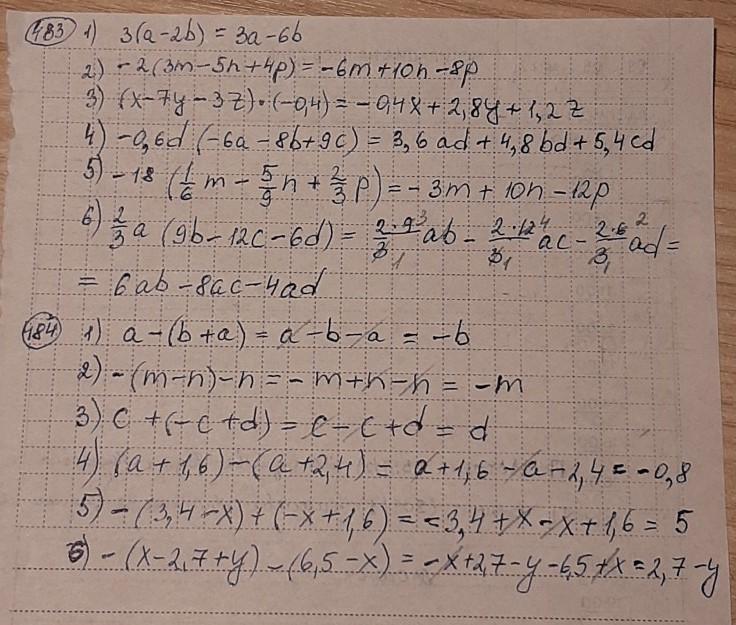 483 1) 3(a-2b) = 3a-6b
2) -2(3m-5n+4p) = -6m+10n-8p
3) (x-7y-3z)·(-0,4) = -0,4x+2,8y+1,2z
4) -0,6d (-6a-8b+9c) = 3,6ad+4,8bd+5,4cd
5) -18 (1/6 m - 5/9 n + 2/3 p) = -3m+10n-12p
6) 2/3 a (9b-12c-6d) = 2·9³/3₁ ab - 2·12⁴/3₁ ac - 2·6²/3₁ ad =
= 6ab-8ac-4ad
484 1) a-(b+a) = a-b-a = -b
2) -(m-n)-n = -m+n-n = -m
3) c+(-c+d) = c-c+d = d
4) (a+1,6)-(a+2,4) = a+1,6-a-2,4 = -0,8
5) -(3,4-x)+(-x+1,6) = -3,4+x-x+1,6 = 5
6) -(x-2,7+y)-(6,5-x) = -x+2,7-y-6,5+x = 2,7-y